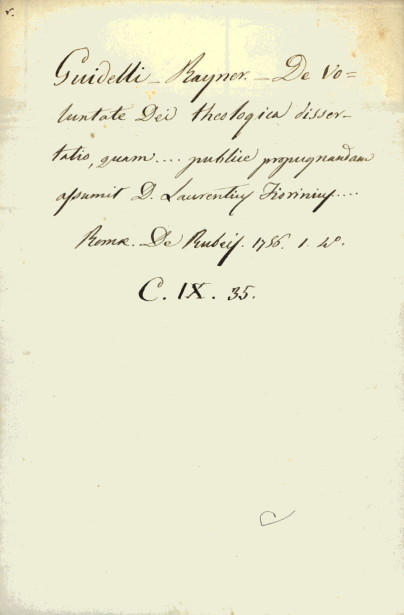 Guidelli - Rayner. - De Vo=
luntate Dei theologica disser-
tatio, quam .... publice propugnandam
assumit D. Laurentius Fiorinius ....
Romæ. De Rubeis. 1756. 1. 4º.
C. IX. 35.